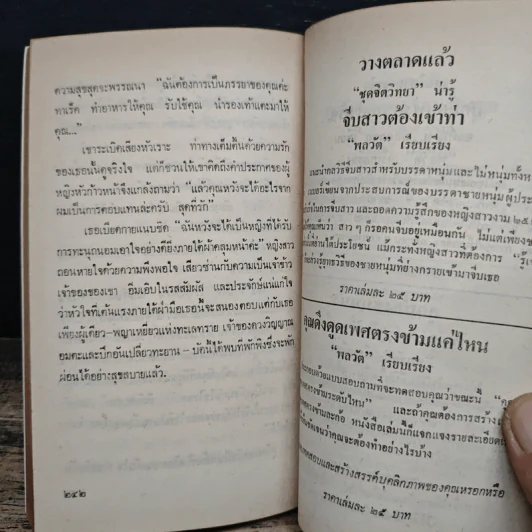 ความสุขสุดจะพรรณนา "ฉันต้องการเป็นภรรยาของคุณค่ะ
ทำอาหารให้คุณ รับใช้คุณ นำรองเท้าแตะมาให้
คุณ..."
เขาระเบิดเสียงหัวเราะ ท่าทางเต็มตื้นด้วยความรัก
ของเธอนั้นดูจริงใจ แต่ก็ชวนให้เขาคิดถึงคำประกาศของผู้
หญิงหัวก้าวหน้าจึงแกล้งถามว่า "แล้วคุณหวังจะได้อะไรจาก
ผมเป็นการตอบแทนล่ะครับ สุดที่รัก"
เธอเบียดกายแนบชิด "ฉันหวังจะได้เป็นหญิงที่ได้รับ
การทะนุถนอมเอาใจอย่างดียิ่งภายใต้ผ้าคลุมหน้าค่ะ" หญิงสาว
ถอนหายใจด้วยความพึงพอใจ เสียวซ่านกับความเป็นเจ้าข้าว
เจ้าของของเขา อิ่มเอิบในรสสัมผัส และประจักษ์แน่แก่ใจ
ว่าหัวใจที่เต้นแรงภายใต้ฝ่ามือเธอนี้จะสนองตอบแต่กับเธอ
เพียงผู้เดียว-พญาเหยี่ยวแห่งทะเลทราย เจ้าของดวงวิญญาณ
อมตะและปีกอันเปลี่ยวทะยาน - บัดนี้ได้พบที่พักพิงซึ่งจะพัก
ผ่อนได้อย่างสุขสบายแล้ว.
๒๔๒
วางตลาดแล้ว
"ชุดจิตวิทยา" น่ารู้
จีบสาวต้องเข้าท่า
"พลวัต" เรียบเรียง
แนะนำกลวิธีจีบสาวสำหรับบรรดาหนุ่มและไม่หนุ่มทั้งห
เขียนจากประสบการณ์ของบรรดาชายหนุ่มผู้ประ
ในการจีบสาว และถอดความรู้สึกของหญิงสาวงาม ๒๕
ว่า สาว ๆ ก็รอคนจีบอยู่เหมือนกัน ไม่แต่เพียงช
อ่านได้ประโยชน์ แม้กระทั่งหญิงสาวที่ต้องการ "รู้เ
รู้ยุทธวิธีของชายหนุ่มที่ย่างกรายเข้ามาจีบเธอ
ราคาเล่มละ ๒๕ บาท
คุณดึงดูดเพศตรงข้ามแค่ไหน
"พลวัต" เรียบเรียง
ด้วยแบบสอบถามที่จะทดสอบคุณว่าขณะนี้ "คุ
ตรงข้ามระดับไหน" และถ้าคุณต้องการสร้างเ
ตรงข้ามละก้อ หนังสือเล่มนี้ก็แจกแจงรายละเอียด
ชัดเจนว่าคุณจะต้องทำอย่างไรบ้าง
ทดสอบและสร้างสรรค์บุคลิกภาพของคุณเหรอกหรือ
ราคาเล่มละ ๒๕ บาท